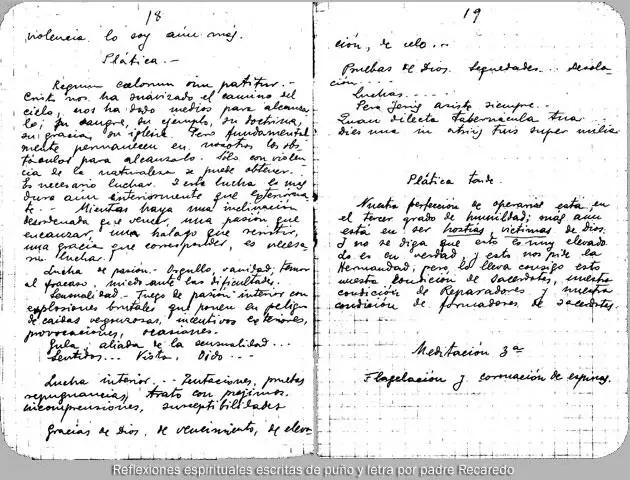 18
violencia lo soy aún más.
Plática.-
Regnum coelorum vim patitur.-
Cristo nos ha suavizado el camino del
cielo, nos ha dado medios para alcanzar
lo; su sangre, su ejemplo, su doctrina,
su gracia, su iglesia. Pero fundamental
mente permanecen en nosotros los obs
táculos para alcanzarlo. Sólo con violen
cia de la naturaleza se puede obtener.
Es necesario luchar. I esta lucha es más
dura aún interiormente que exteriormen
te.- Mientras haya una inclinación
desordenada que vencer, una pasión que
encauzar, una halago que resistir,
una gracia que corresponder, es necesa
rio luchar.
Lucha de pasión. Orgullo, vanidad, temor
al fracaso, miedo ante las dificultades.
Sensualidad - Fuego de pasión interior con
explosiones brutales que ponen en peligro
de caídas vergonzosas, incentivos exteriores,
provocaciones, ocasiones.
Gula, aliada de la sensualidad...
Sentidos... Vista, Oído...
Lucha interior... Tentaciones, pruebas
repugnancias, trato con prójimos.
incomprensiones, susceptibilidades
Gracias de Dios, de vencimiento, de eleva
19
ción, de celo...
Pruebas de Dios. Sequedades... desola-
ción
Luchas....
Pero Jesús asiste siempre.
Quam dilecta tabernacula tua
Dies una in atriis tuis super milia
Plática tarde.
Nuestra perfección de operarios está en
el tercer grado de humildad; más aún
está en ser hostias, víctimas de Dios.
I no se diga que esto es muy elevado
Lo es en verdad y esto nos pide la
Hermandad; pero lo lleva consigo esto
nuestra condición de Sacerdotes, nuestra
condición de Reparadores y nuestra
condición de formadores de Sacerdotes.
Meditación 3ª
Flagelación y coronación de espinas.
Reflexiones espirituales escritas de puño y letra por padre Recaredo